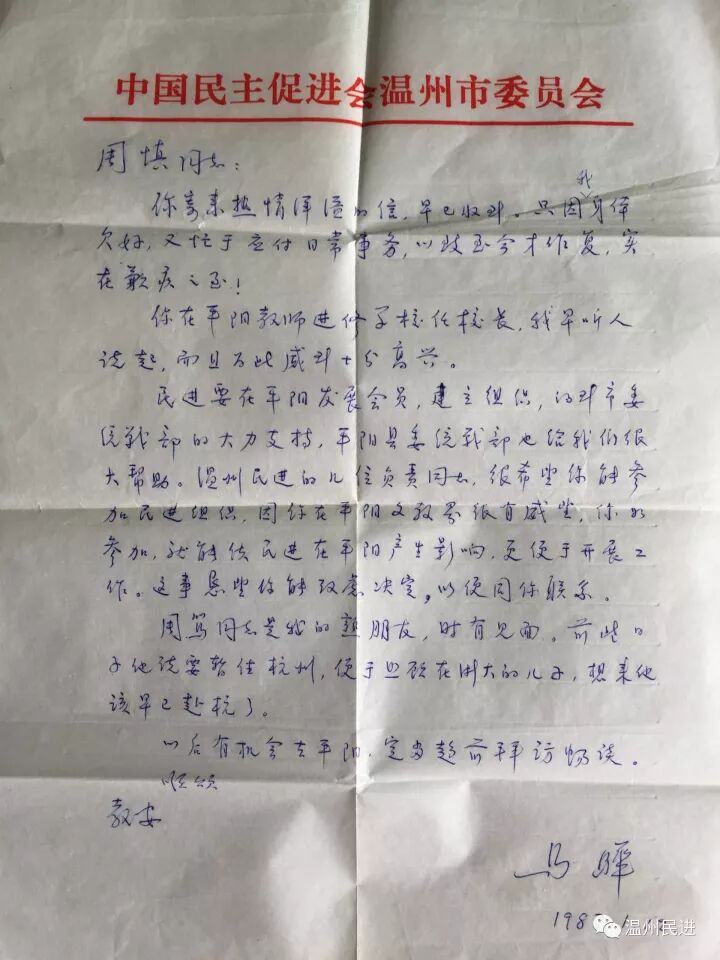 中国民主促进会温州市委员会
周慎同志：
我
你寄来热情洋溢的信，早已收到。只因身体
欠好，又忙于应付日常事务，以致至今才作复，实
在歉疚之至！
你在平阳教师进修学校任校长，我早听人
说起，而且为此感到十分高兴。
民进要在平阳发展会员，建立组织，得到市委
统战部的大力支持，平阳县委统战部也给我们很
大帮助。温州民进的几位负责同志，很希望你能参
加民进组织，因你在平阳文教界很有威望，你如
参加，就能使民进在平阳产生影响，更便于开展工
作。这事恳望你能致意决定，以便同你联系。
周笃同志是我的熟朋友，时有见面。前些日
子他说要暂住杭州，便于照顾在浙大的儿子，想来他
该早已赴杭了。
以后有机会去平阳，定当趋前拜访畅谈。
顺颂
教安
马骅
198
温州民进